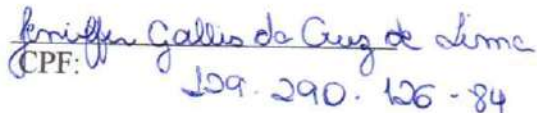 Jeniffer Gallis da Cruz de Lima
CPF:
129.290.126-84